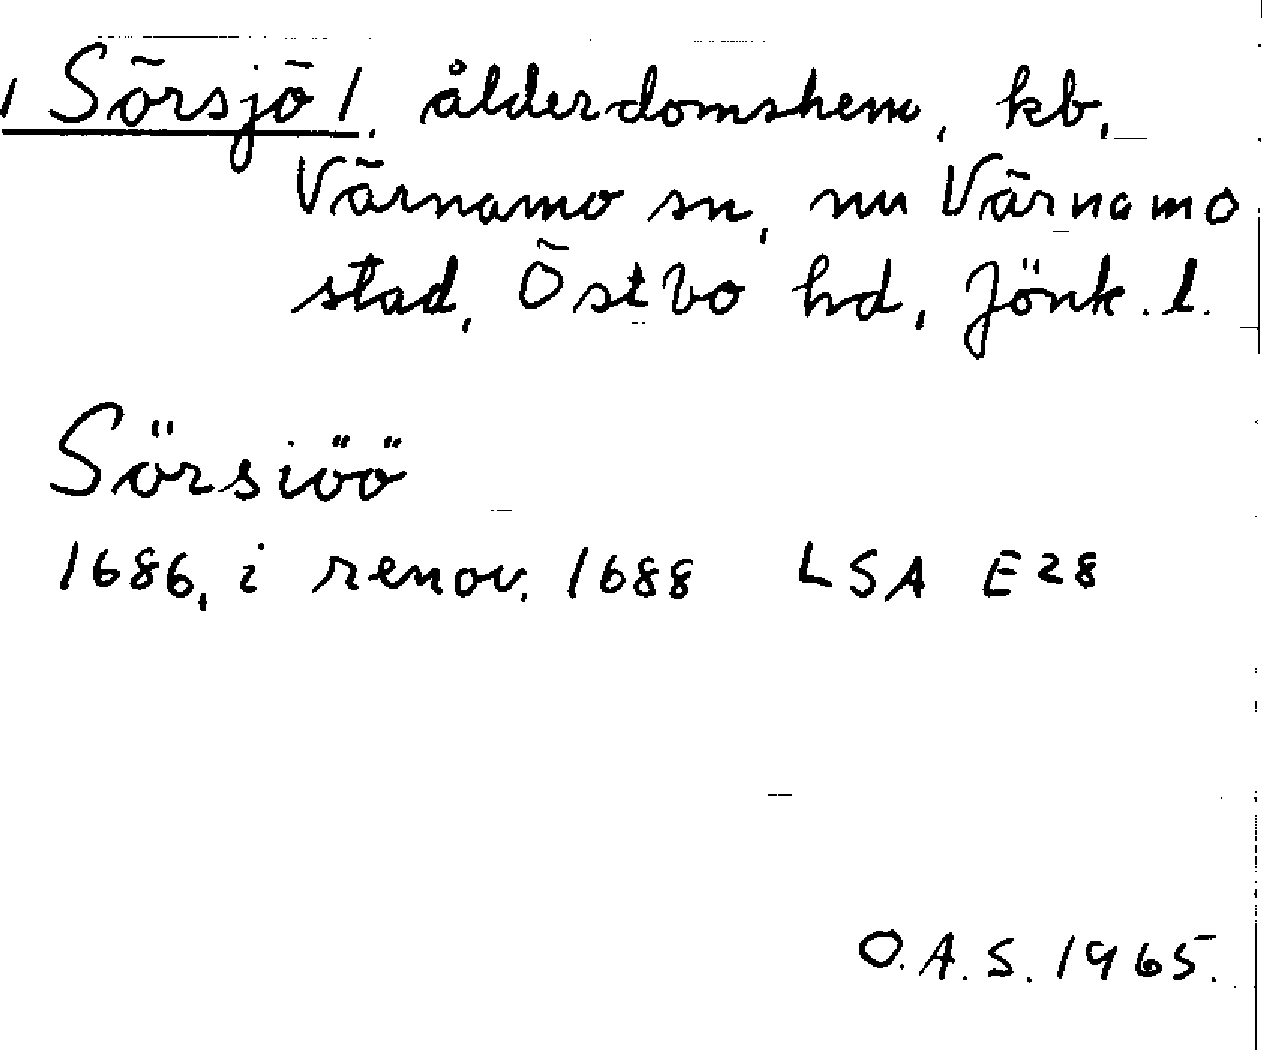 / Sörsjö /, ålderdomshem, kb,
Värnamo sn, nu Värnamo
stad, Östbo hd, Jönk. l.
Sörsiöö
1686, i renov. 1688 LSA E28
O.A.S. 1965.